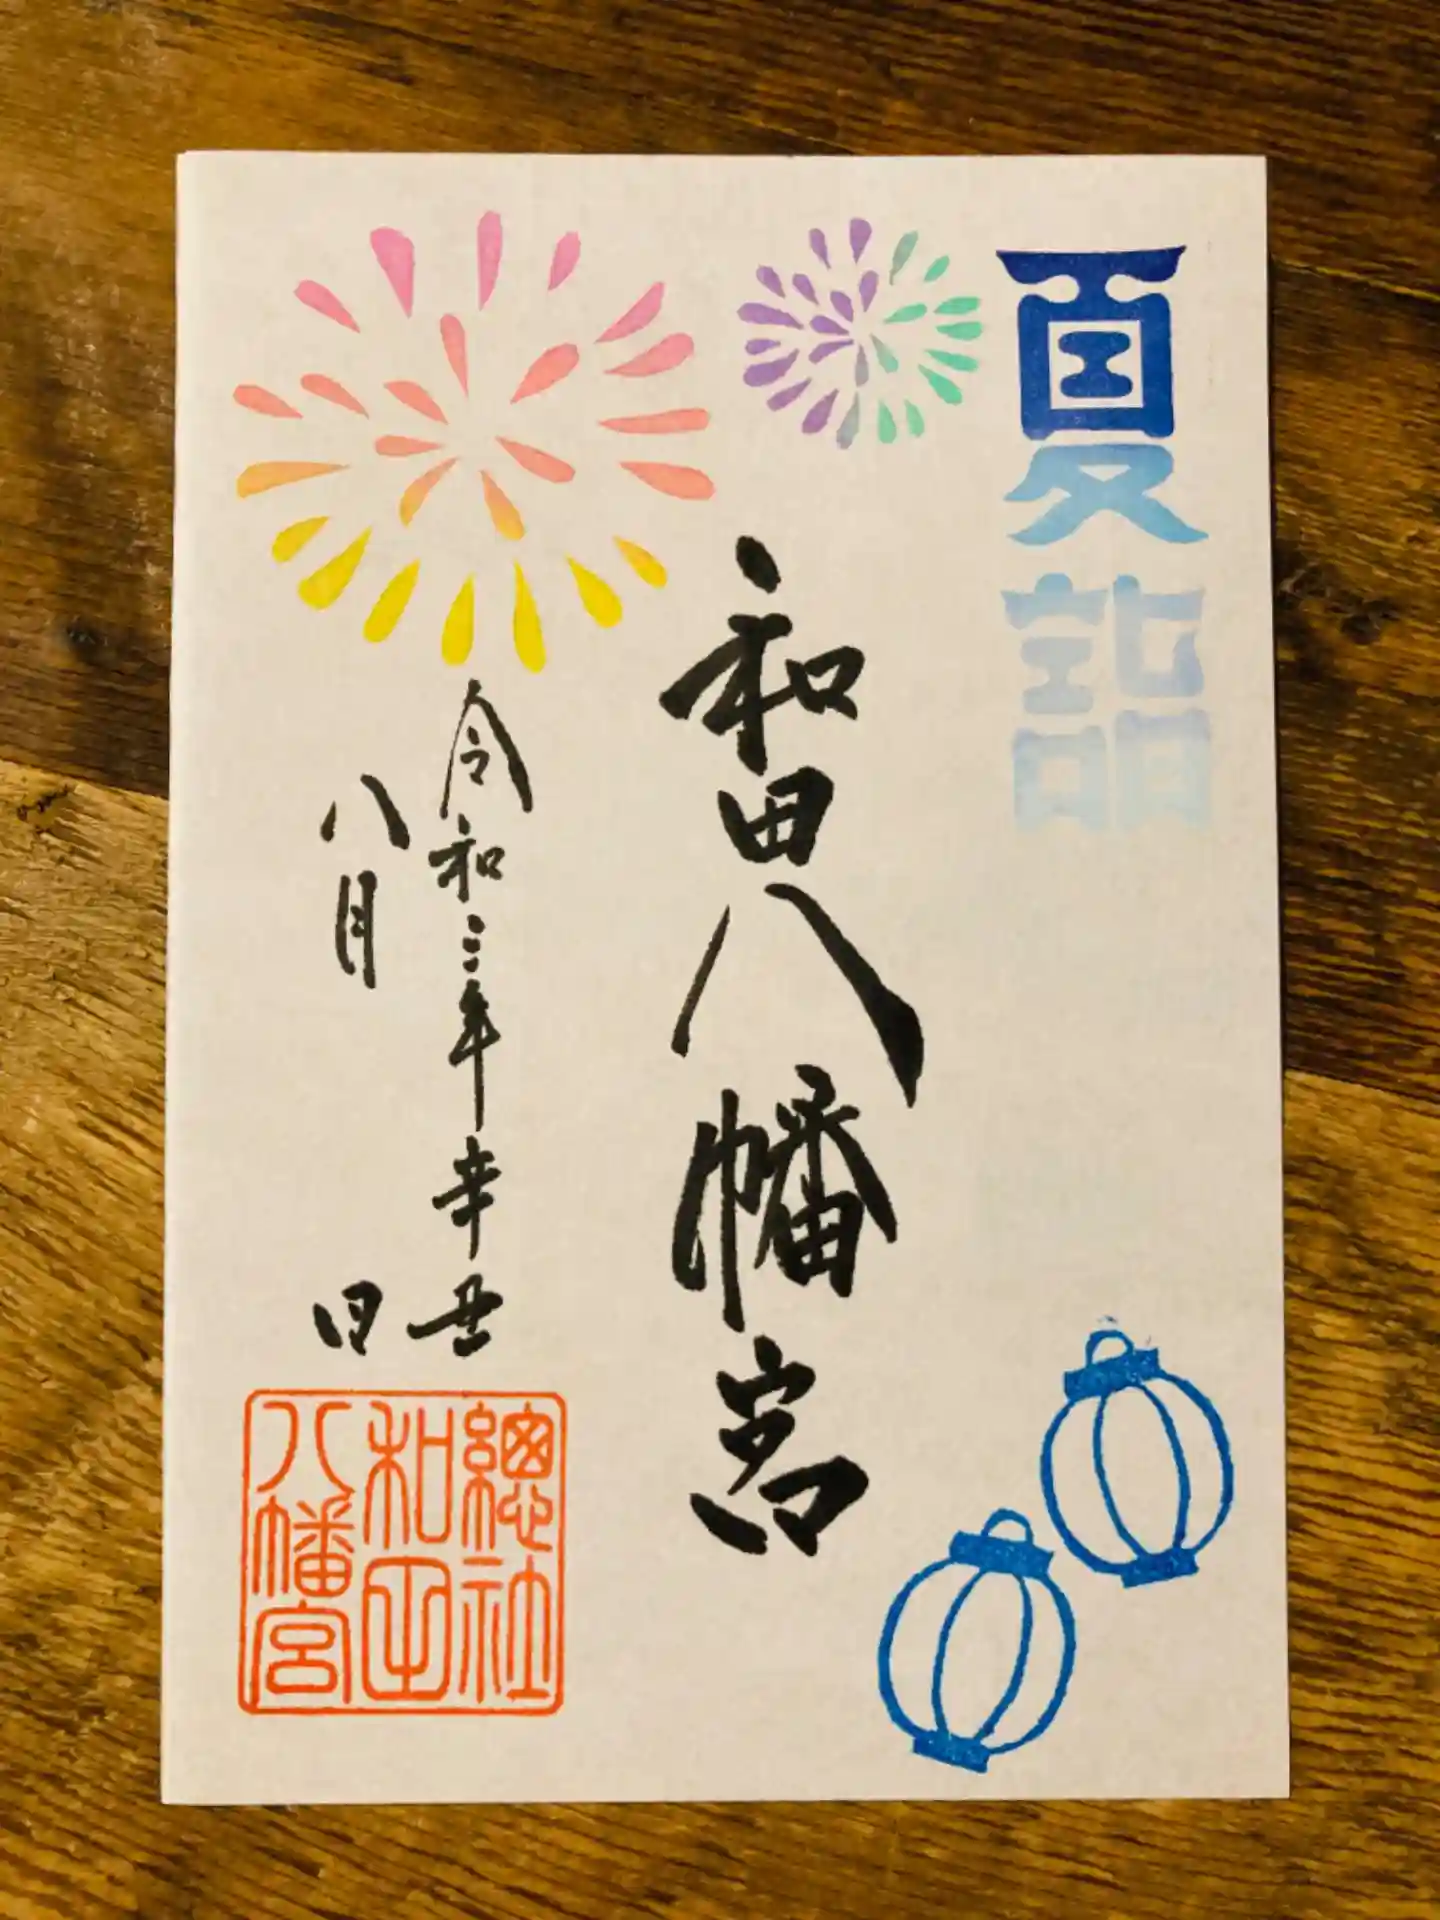 夏詣
和田八幡宮
令和三年辛丑
八月 日
總社
和田
八幡宮